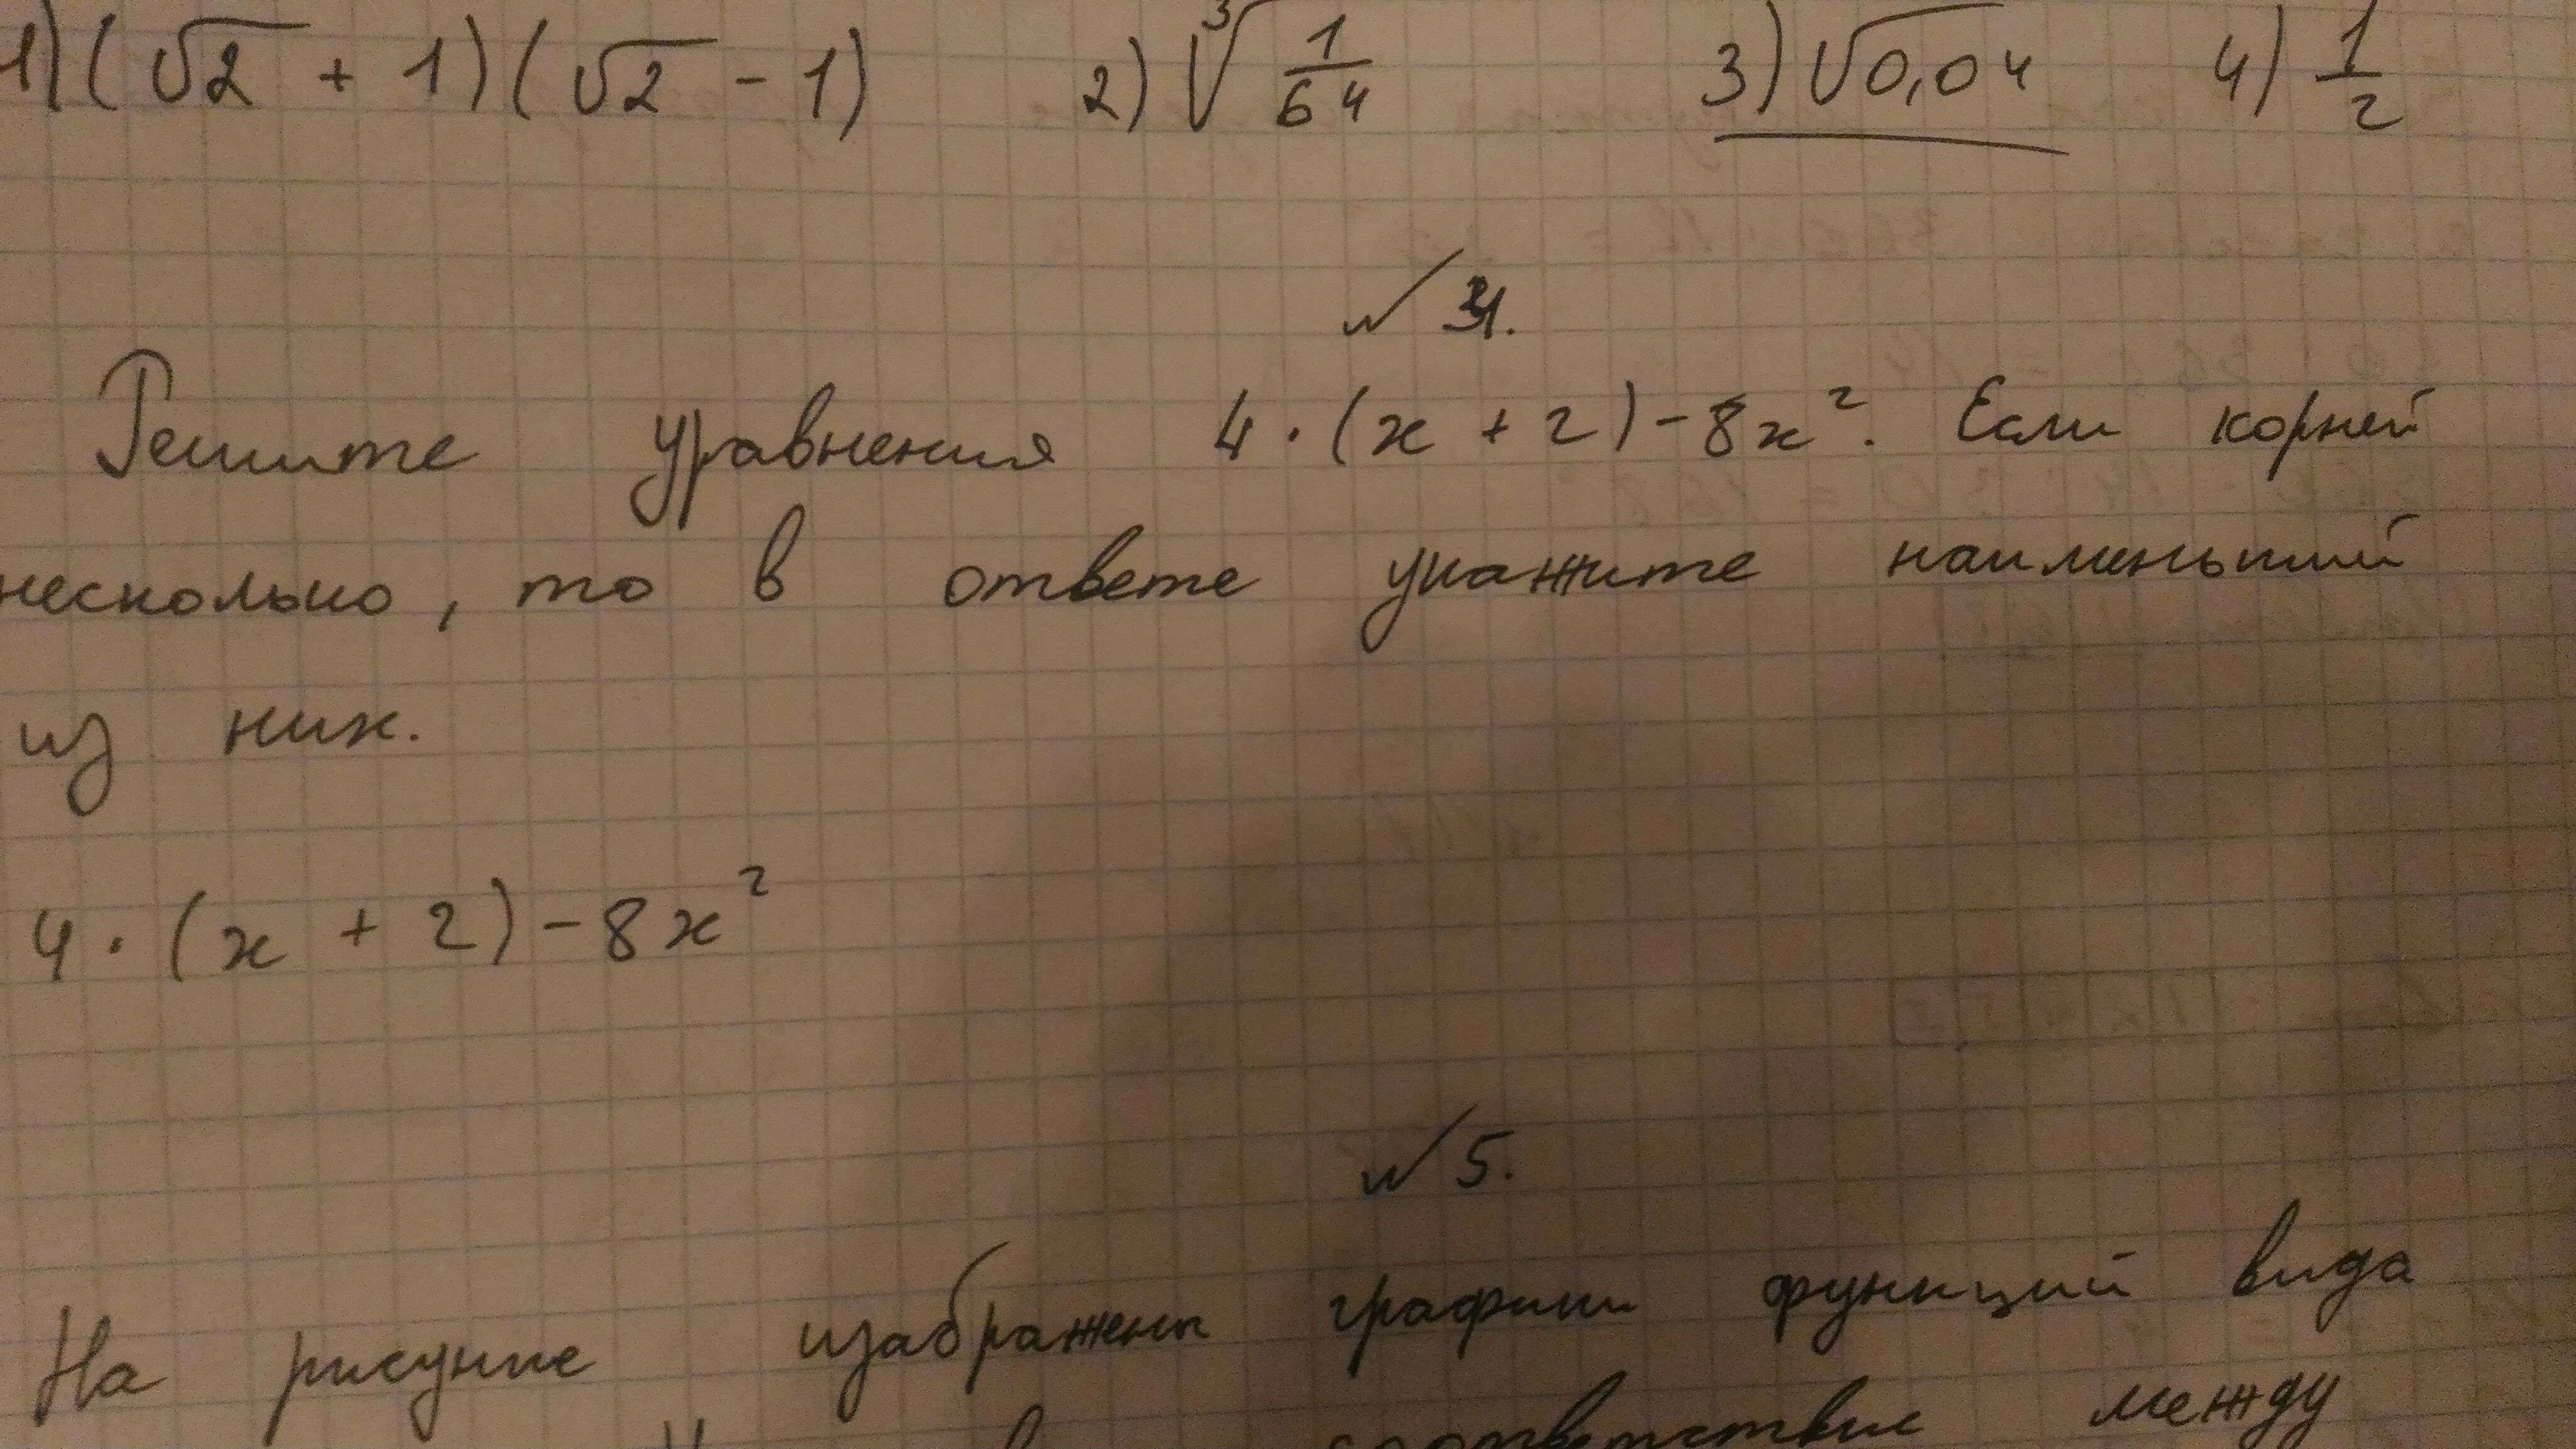 1) (√2 + 1)(√2 - 1) 2) ∛(1/64) 3) √0,04 4) 1/2
№ 4.
Решите уравнения 4 · (x + 2) - 8x². Если корней
несколько, то в ответе укажите наименьший
из них.
4 · (x + 2) - 8x²
№ 5.
На рисунке изображены графики функций вида
соответствие между